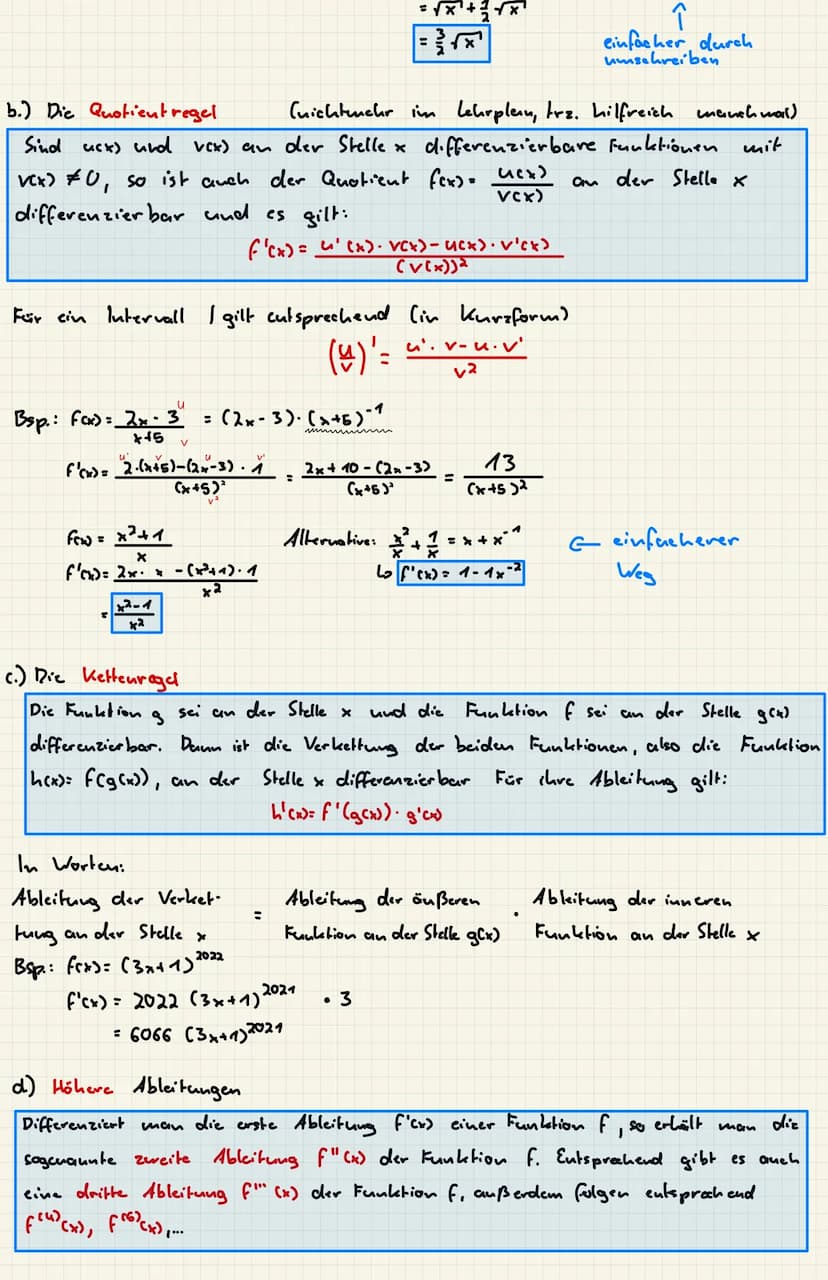 = √x + 1/2 √x
= 3/2 √x
↑
einfacher durch
umschreiben
b.) Die Quotientregel (nichtmehr im Lehrplan, trz. hilfreich manchmal)
Sind u(x) und v(x) an der Stelle x differenzierbare Funktionen mit
v(x) ≠ 0, so ist auch der Quotient f(x) = u(x)/v(x) an der Stelle x
differenzierbar und es gilt:
f'(x) = (u'(x) · v(x) - u(x) · v'(x))/(v(x))²
Für ein Intervall I gilt entsprechend (in Kurzform)
(u/v)' = (u' · v - u · v')/v²
Bsp.: f(x) = (2x - 3)/(x+5) = (2x - 3) · (x+5)⁻¹
u
v
u' v u v'
f'(x) = (2·(x+5)-(2x-3) · 1)/(x+5)² = (2x + 10 - (2x-3))/(x+5)² = 13/(x+5)²
v²
f(x) = (x²+1)/x Alternative: x²/x + 1/x = x + x⁻¹ ← einfacherer
f'(x) = (2x · x - (x²+1) · 1)/x² ↳ f'(x) = 1 - 1x⁻² Weg
= (x²-1)/x²
c.) Die Kettenregel
Die Funktion g sei an der Stelle x und die Funktion f sei an der Stelle g(x)
differenzierbar. Dann ist die Verkettung der beiden Funktionen, also die Funktion
h(x) = f(g(x)), an der Stelle x differenzierbar Für ihre Ableitung gilt:
h'(x) = f'(g(x)) · g'(x)
In Worten:
Ableitung der Verket- = Ableitung der äußeren · Ableitung der inneren
tung an der Stelle x Funktion an der Stelle g(x) Funktion an der Stelle x
Bsp.: f(x) = (3x+1)²⁰²²
f'(x) = 2022 (3x+1)²⁰²¹ · 3
= 6066 (3x+1)²⁰²¹
d) Höhere Ableitungen
Differenziert man die erste Ableitung f'(x) einer Funktion f, so erhält man die
sogenannte zweite Ableitung f''(x) der Funktion f. Entsprechend gibt es auch
eine dritte Ableitung f'''(x) der Funktion f, außerdem folgen entsprechend
f⁽⁴⁾(x), f⁽⁵⁾(x), ...